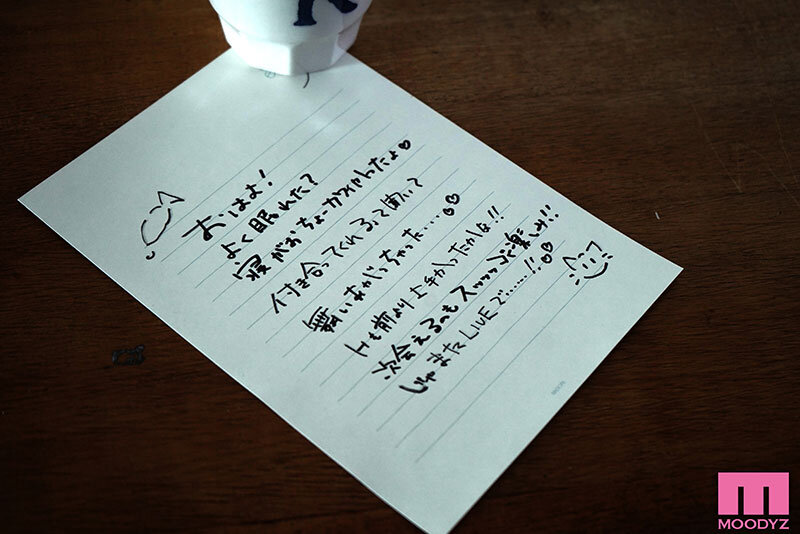 おはよ!
よく眠れた?
寝がおちょー
付き合ってくれるって聞いて
舞いあがっちゃった....♡♡
も前より上手かったかな!!
次会えるのもスッッッゴく楽しみ!!
じゃまたLIVEで......!!♡
MOODYZ